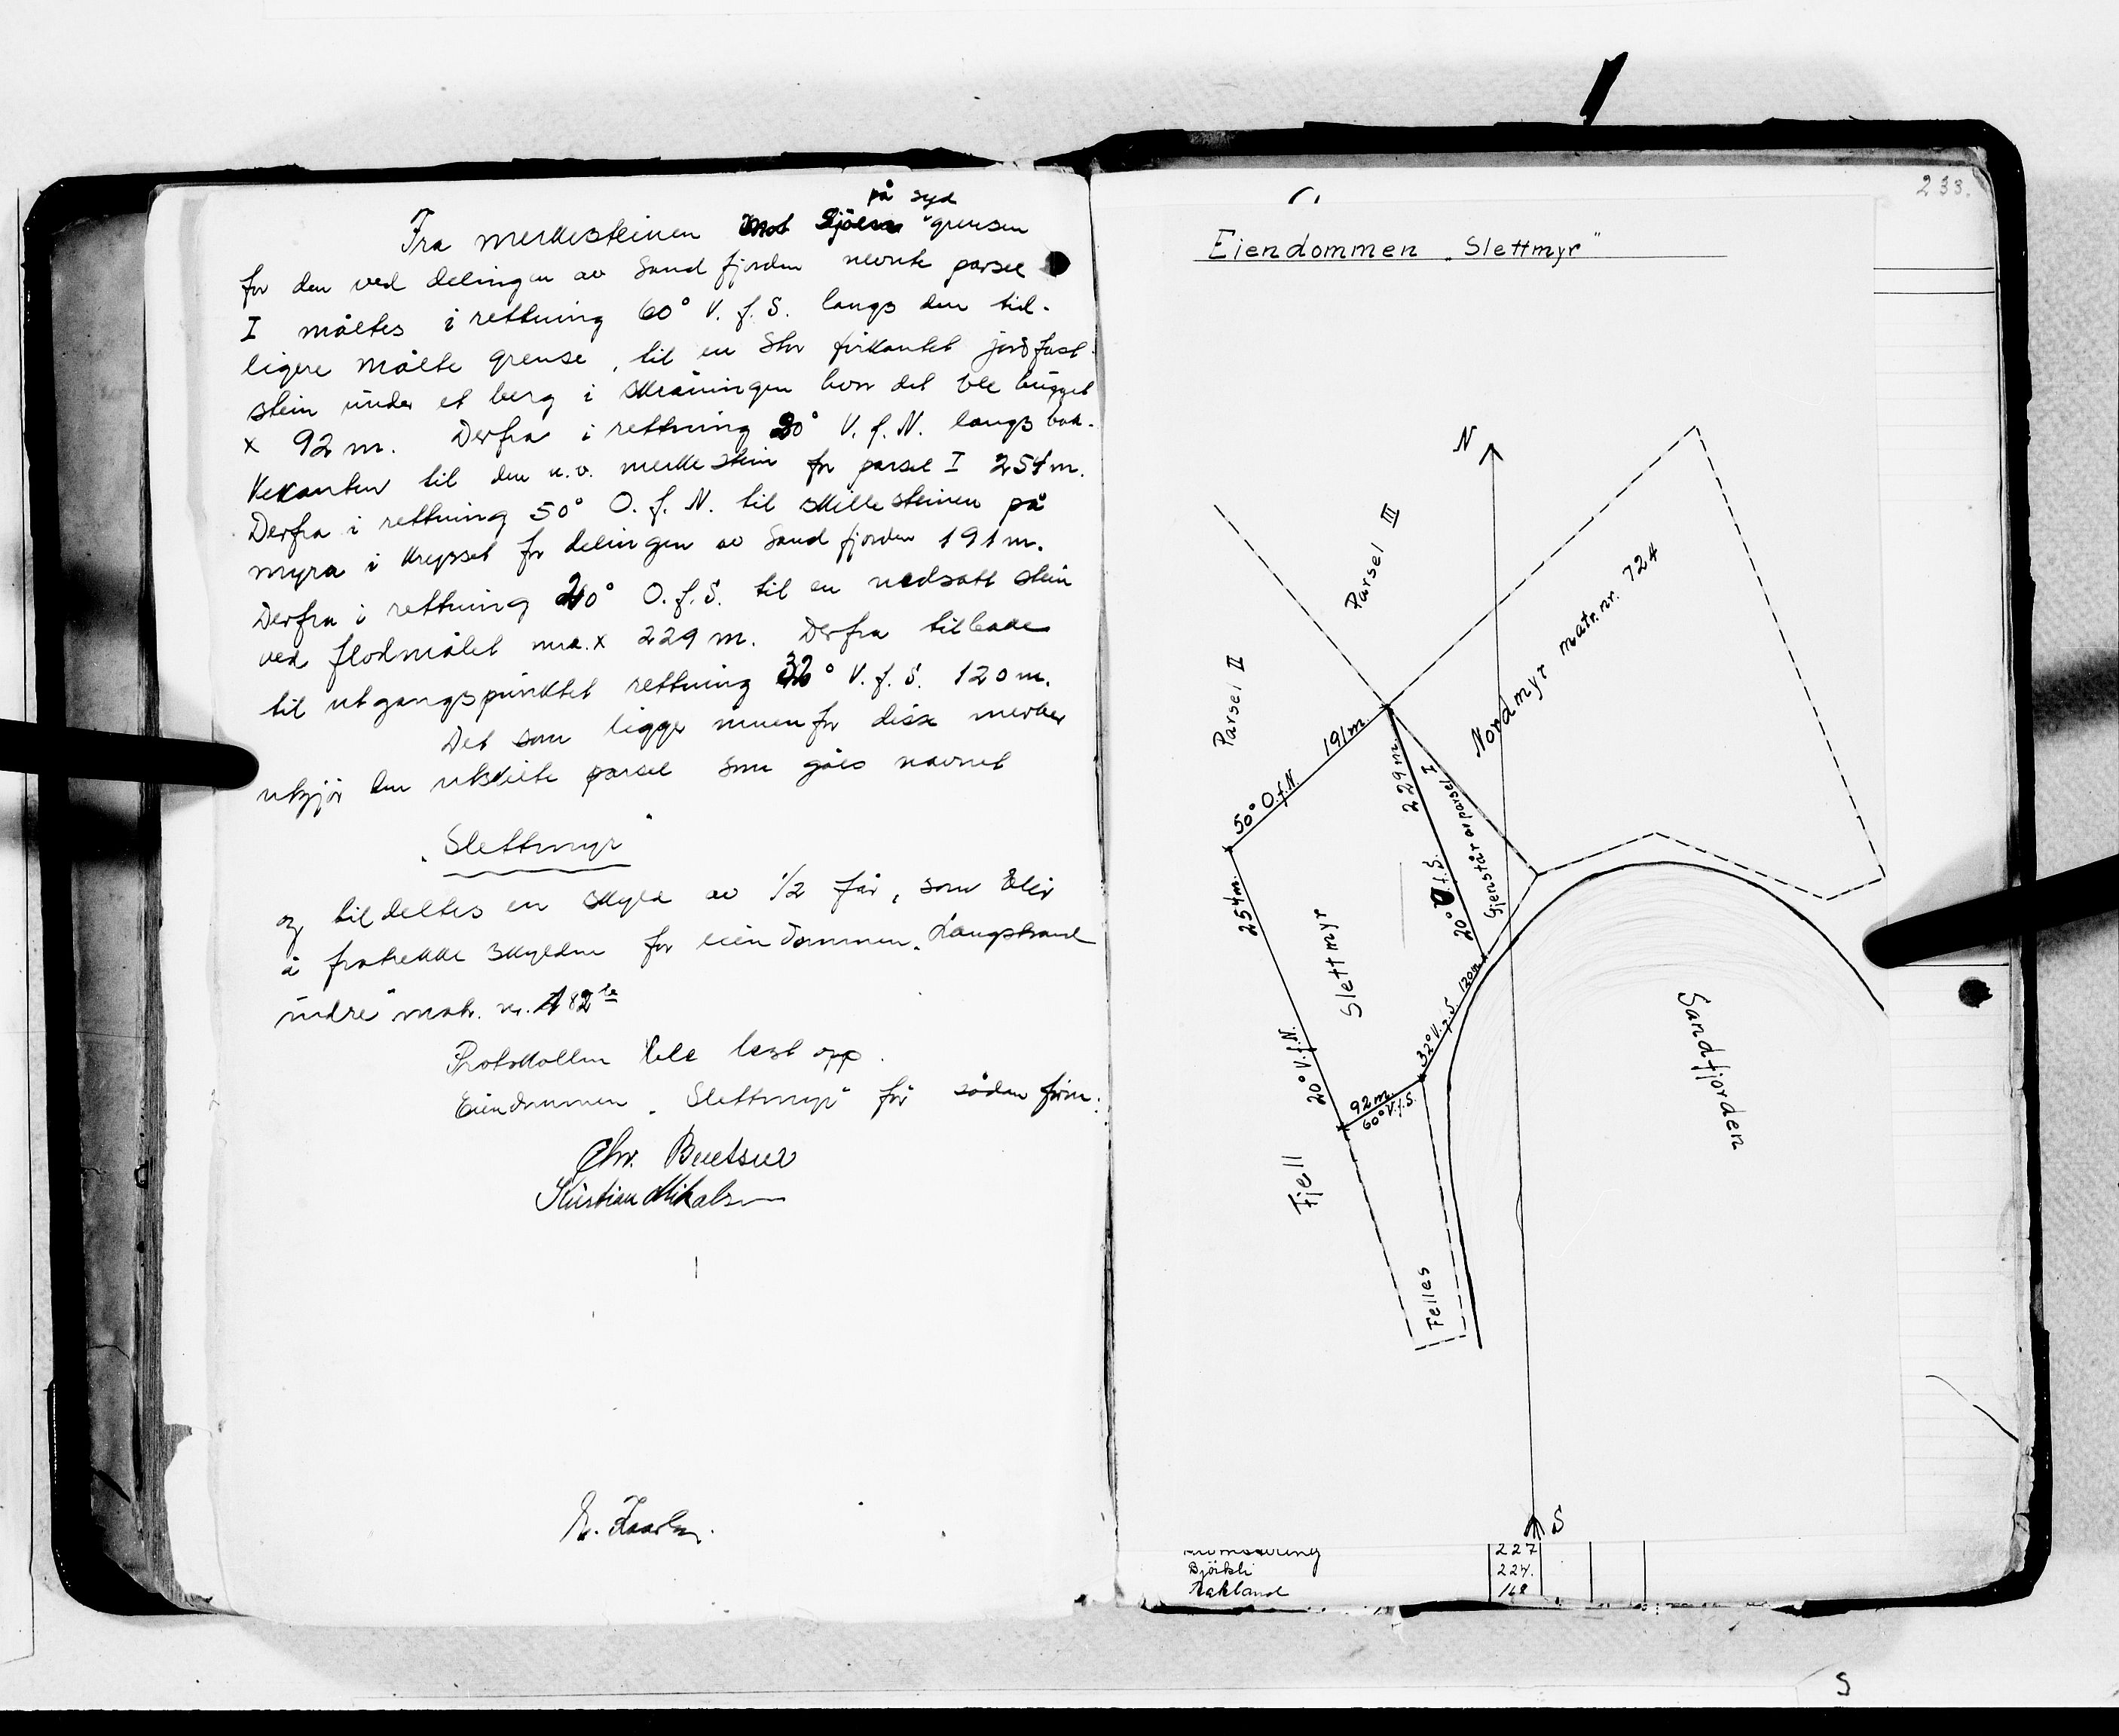 på syd
Fra merkesteinen mot Sjöen grensen
for den ved delingen av Sandfjorden nevnte parsel
I måltes i rettning 60° V. f. S. langs den tid-
ligere målte grense, til en stor firkantet jordfast
stein under et berg i skråningen hvor det ble hugget
x 92 m. Derfra i rettning 20° V. f. N. langs bak-
kekanten til den n.v. merkestein for parsel I 254 m.
Derfra i rettning 50° O. f. N. til skillesteinen på
myra i krysset for delingen av Sandfjorden 191 m.
Derfra i rettning 20° O. f. S. til en nedsatt stein
ved flodmålet mrk. x 229 m. Derfra tilbake
til utgangspunktet rettning 32° V. f. S. 120 m.
Det som ligger innenfor disse merker
utgjör den utskilte parsel som gives navnet
„Slettmyr"
og tildeltes en skyld av 1/2 får, som blir
å fratrekke skylden for eiendommen „Langstrand
indre" matr. nr. 182
Protokollen ble lest opp.
Eiendommen „Slettmyr" får sådan form:
Chr.
Kristian Mikalsen
233.
Eiendommen „Slettmyr"
N
Parsel III
Nordmyr matr. nr. 724
Parsel II
191 m.
50° O. f. N.
229 m.
Gjenstår av parsel I
20° O. f. S.
254 m.
Slettmyr
120 m.
32° V. f. S.
20° V. f. N.
92 m.
60° V. f. S.
Sandfjorden
Fjell
Felles
S
227
Björkli 224.
168
S